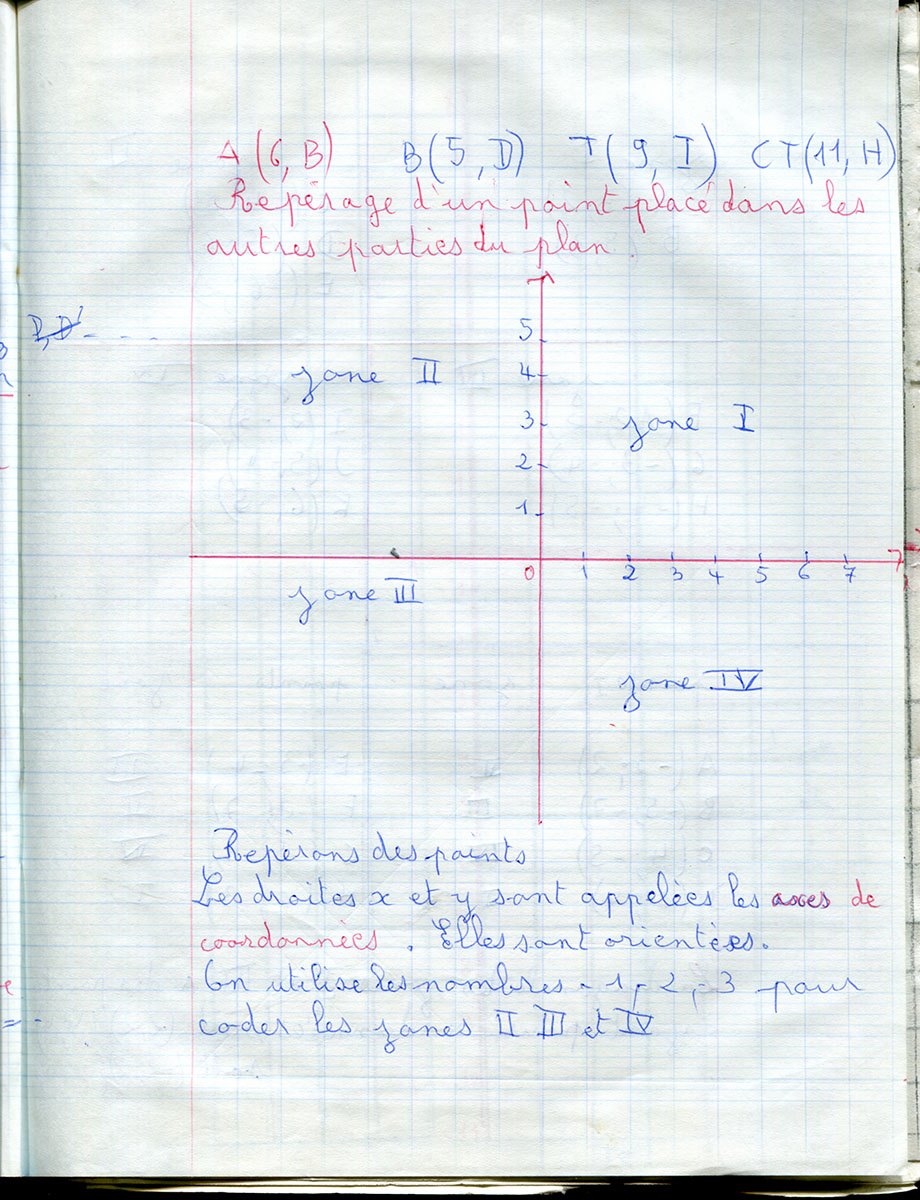 A (6, B) B(5, D) T(9, I) CT(11, H)
Repérage d'un point placé dans les
autres parties du plan.
5
zone II 4
3 zone I
2
1
0 1 2 3 4 5 6 7
zone III
zone IV
Repérons des points
Les droites x et y sont appelées les axes de
coordonnées. Elles sont orientées.
On utilise les nombres -1, -2, -3 pour
coder les zones II III et IV